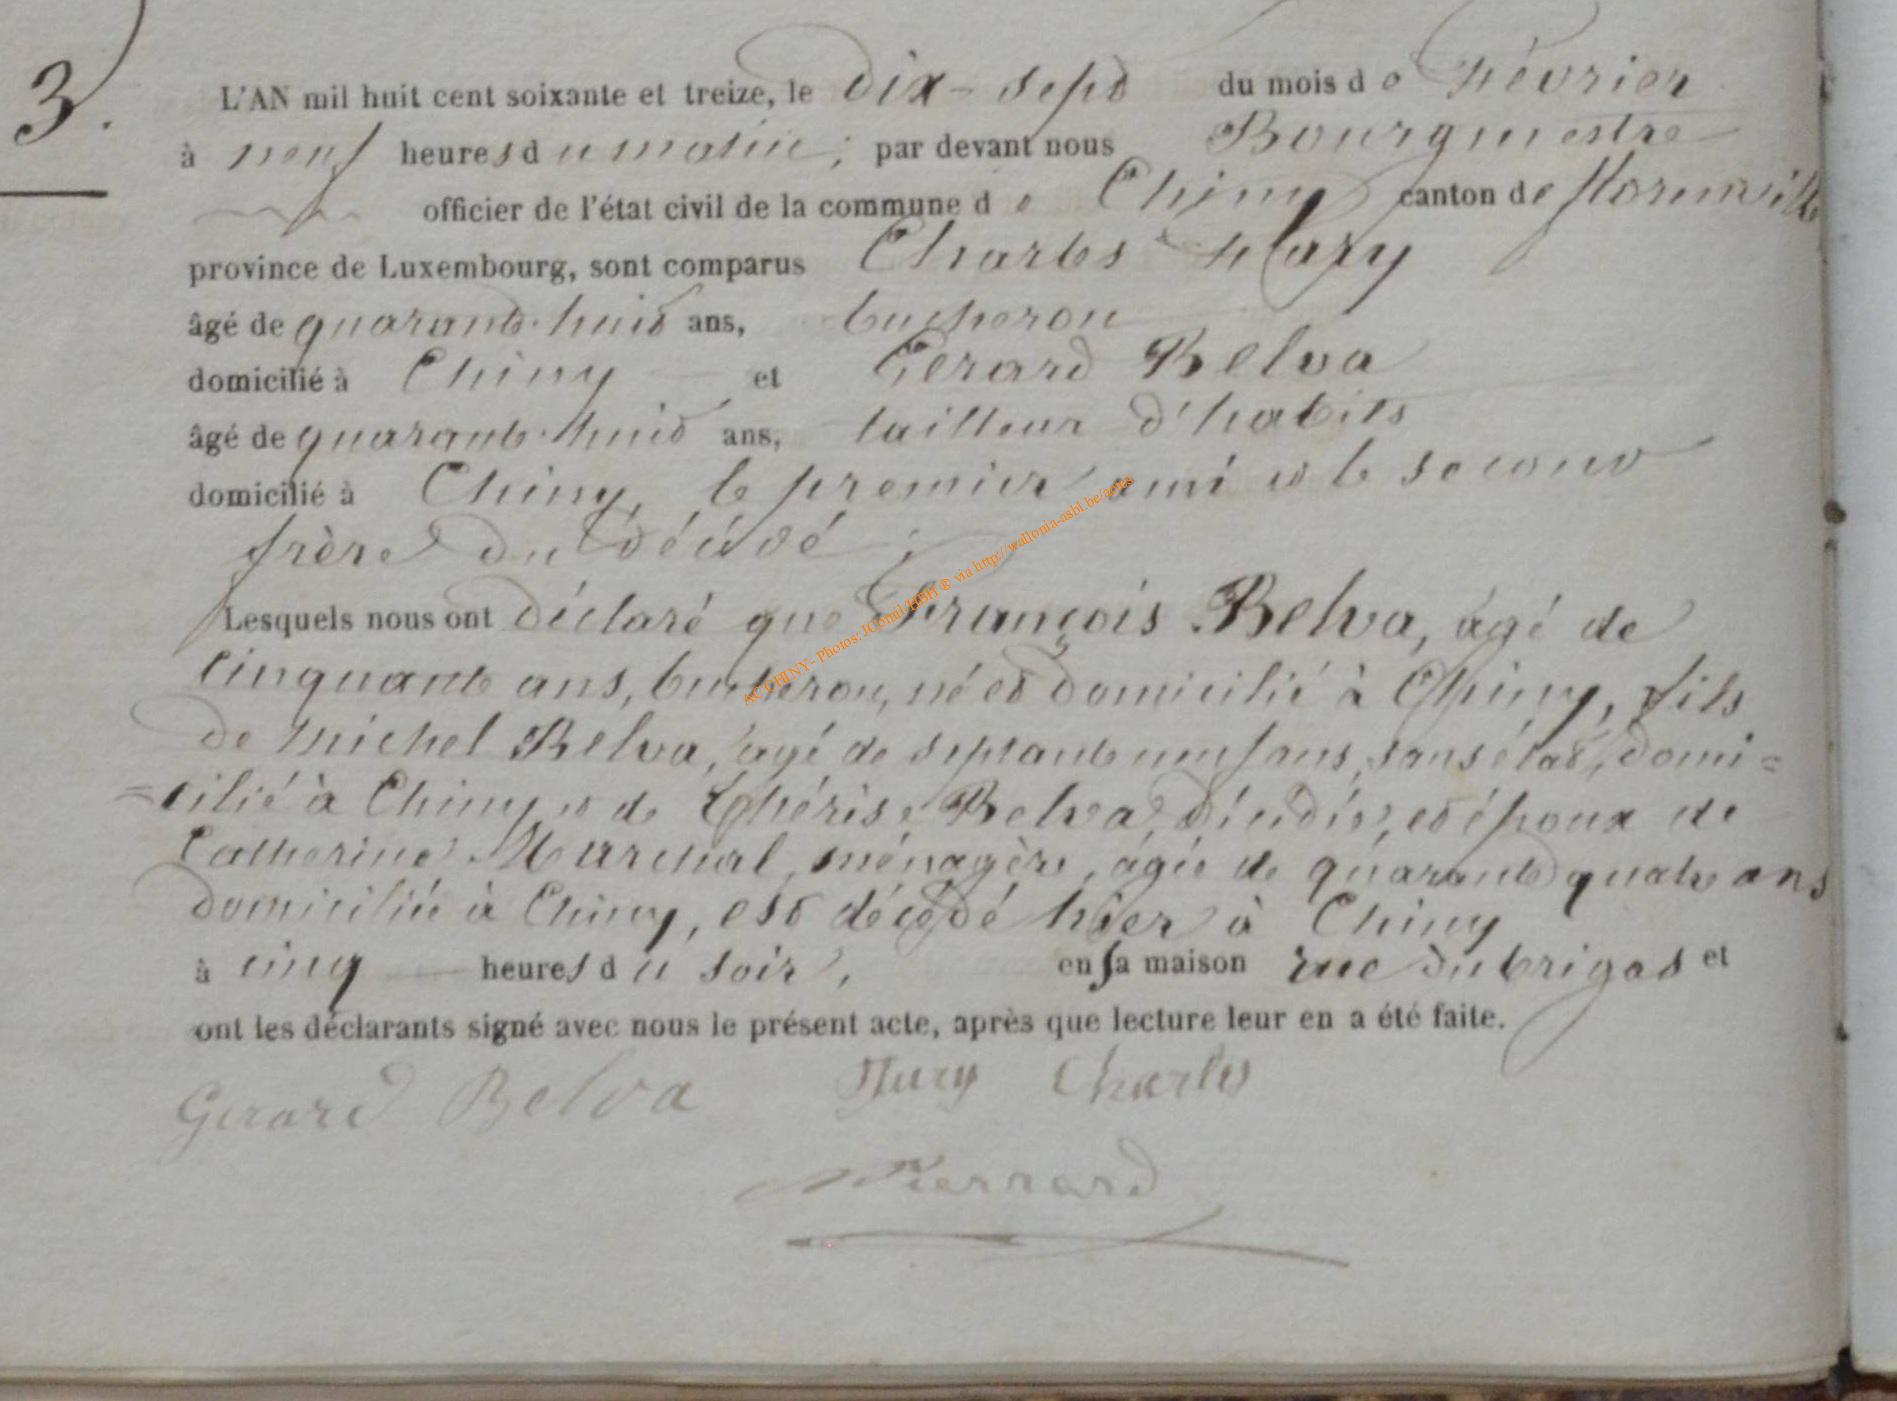 3.
L'AN mil huit cent soixante et treize, le dix-sept du mois de Février
à neuf heures du matin; par devant nous Bourgmestre
officier de l'état civil de la commune de Chiny canton de Florenville
province de Luxembourg, sont comparus Charles
âgé de quarante-huit ans, bucheron
domicilié à Chiny et Gérard Belva
âgé de quarante-huit ans, tailleur d'habits
domicilié à Chiny, le premier ami et le second
frère du décédé;
Lesquels nous ont déclaré que François Belva, âgé de
cinquante ans, bucheron, né et domicilié à Chiny, fils
de Michel Belva, âgé de septante neuf ans, sans état, domi=
=cilié à Chiny et de Thérèse Belva, décédée, et époux de
Catherine Marchal, ménagère, âgée de quarante quatre ans
domiciliée à Chiny, est décédé hier à Chiny
à cinq heures du soir, en sa maison rue du et
ont les déclarants signé avec nous le présent acte, après que lecture leur en a été faite.
Gerard Belva Charles
AC CHINY - Photos: via http://wallonia-asbl.be/actes